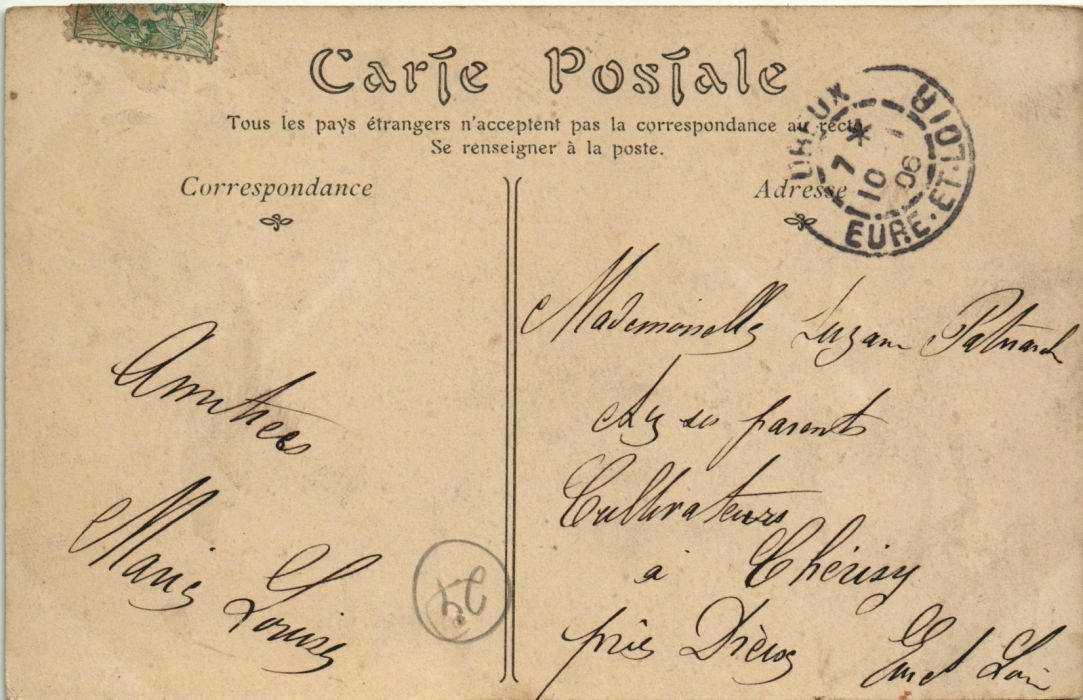 Carte Postale
Tous les pays étrangers n'acceptent pas la correspondance au recto.
Se renseigner à la poste.
Correspondance
Adresse
DREUX
7 * 1
10 06
EURE-ET-LOIR
Amitiées
Marie
Louise
Mademoiselle Suzane Patriarch
chez ses parents
Cultivateurs
à Chérisy
près Dreux Eure et Loir
24